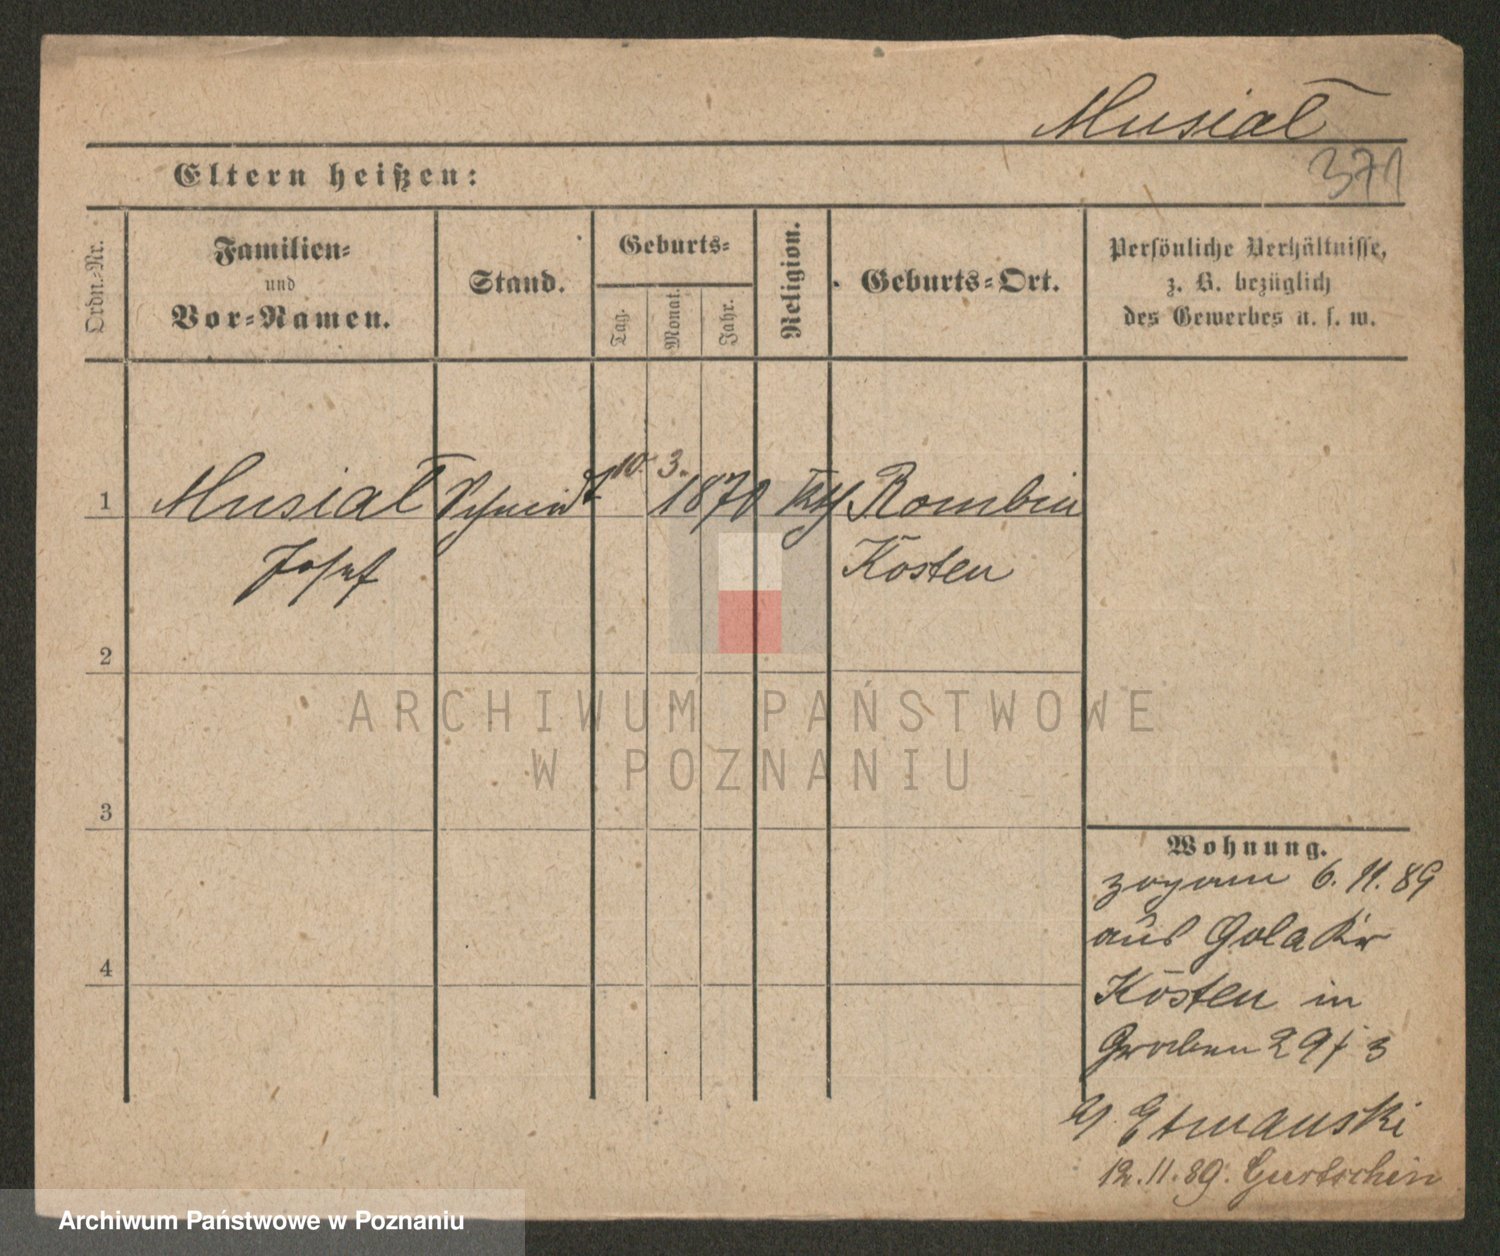 Musiał
371
Eltern heißen:
Ordn.-Nr.
Familien-
und
Vor-Namen.
Stand.
Geburts-
Tag.
Monat.
Jahr.
Religion.
Geburts-Ort.
Persönliche Verhältnisse,
z. B. bezüglich
des Gewerbes u. s. w.
1 Musiał 10. 3. 1870 kth Rombin
Josef Kosten
2
3
4
ARCHIWUM PAŃSTWOWE
W POZNANIU
Wohnung.
zogam 6.11.89
aus Gola Kr
Kosten in
Graben 29/3
Etmanski
12.11.89. Gurtschin
Archiwum Państwowe w Poznaniu